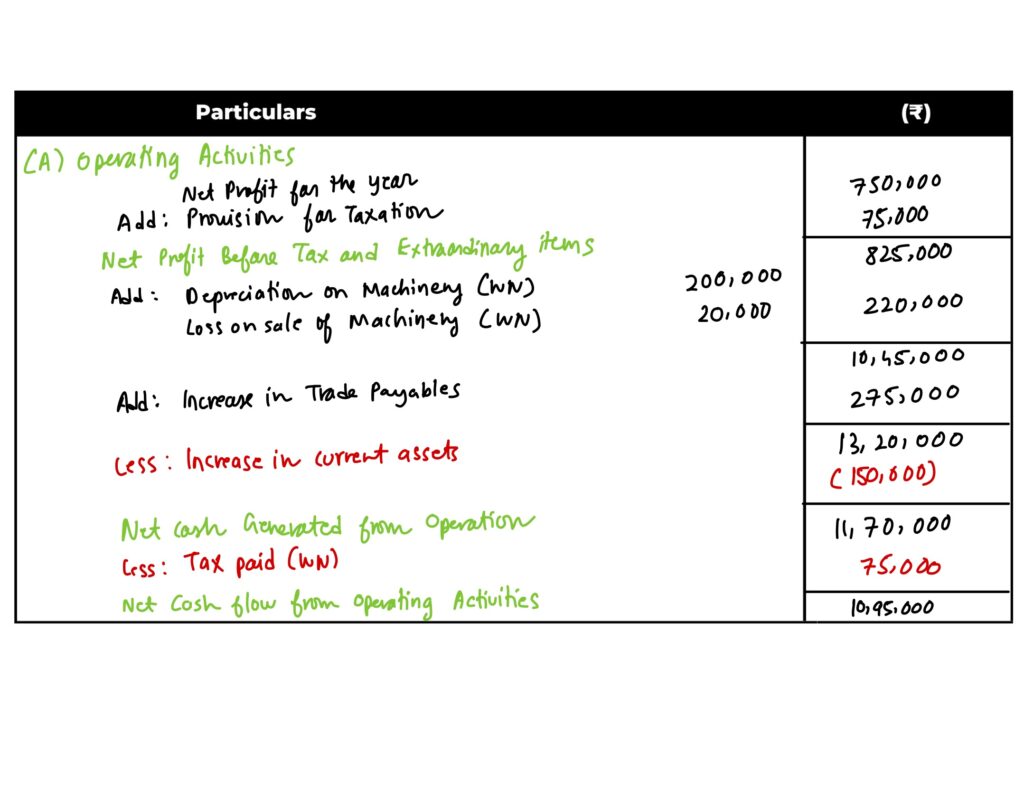 Particulars (₹)
(A) Operating Activities
Net Profit for the year 750,000
Add: Provision for Taxation 75,000
Net Profit Before Tax and Extraordinary items 825,000
Add: Depreciation on Machinery (WN) 200,000
220,000
Loss on sale of Machinery (WN) 20,000
10,45,000
Add: Increase in Trade Payables 275,000
13,20,000
Less: Increase in current assets (150,000)
Net cash Generated from Operation 11,70,000
Less: Tax paid (WN) 75,000
Net Cash flow from Operating Activities 10,95,000